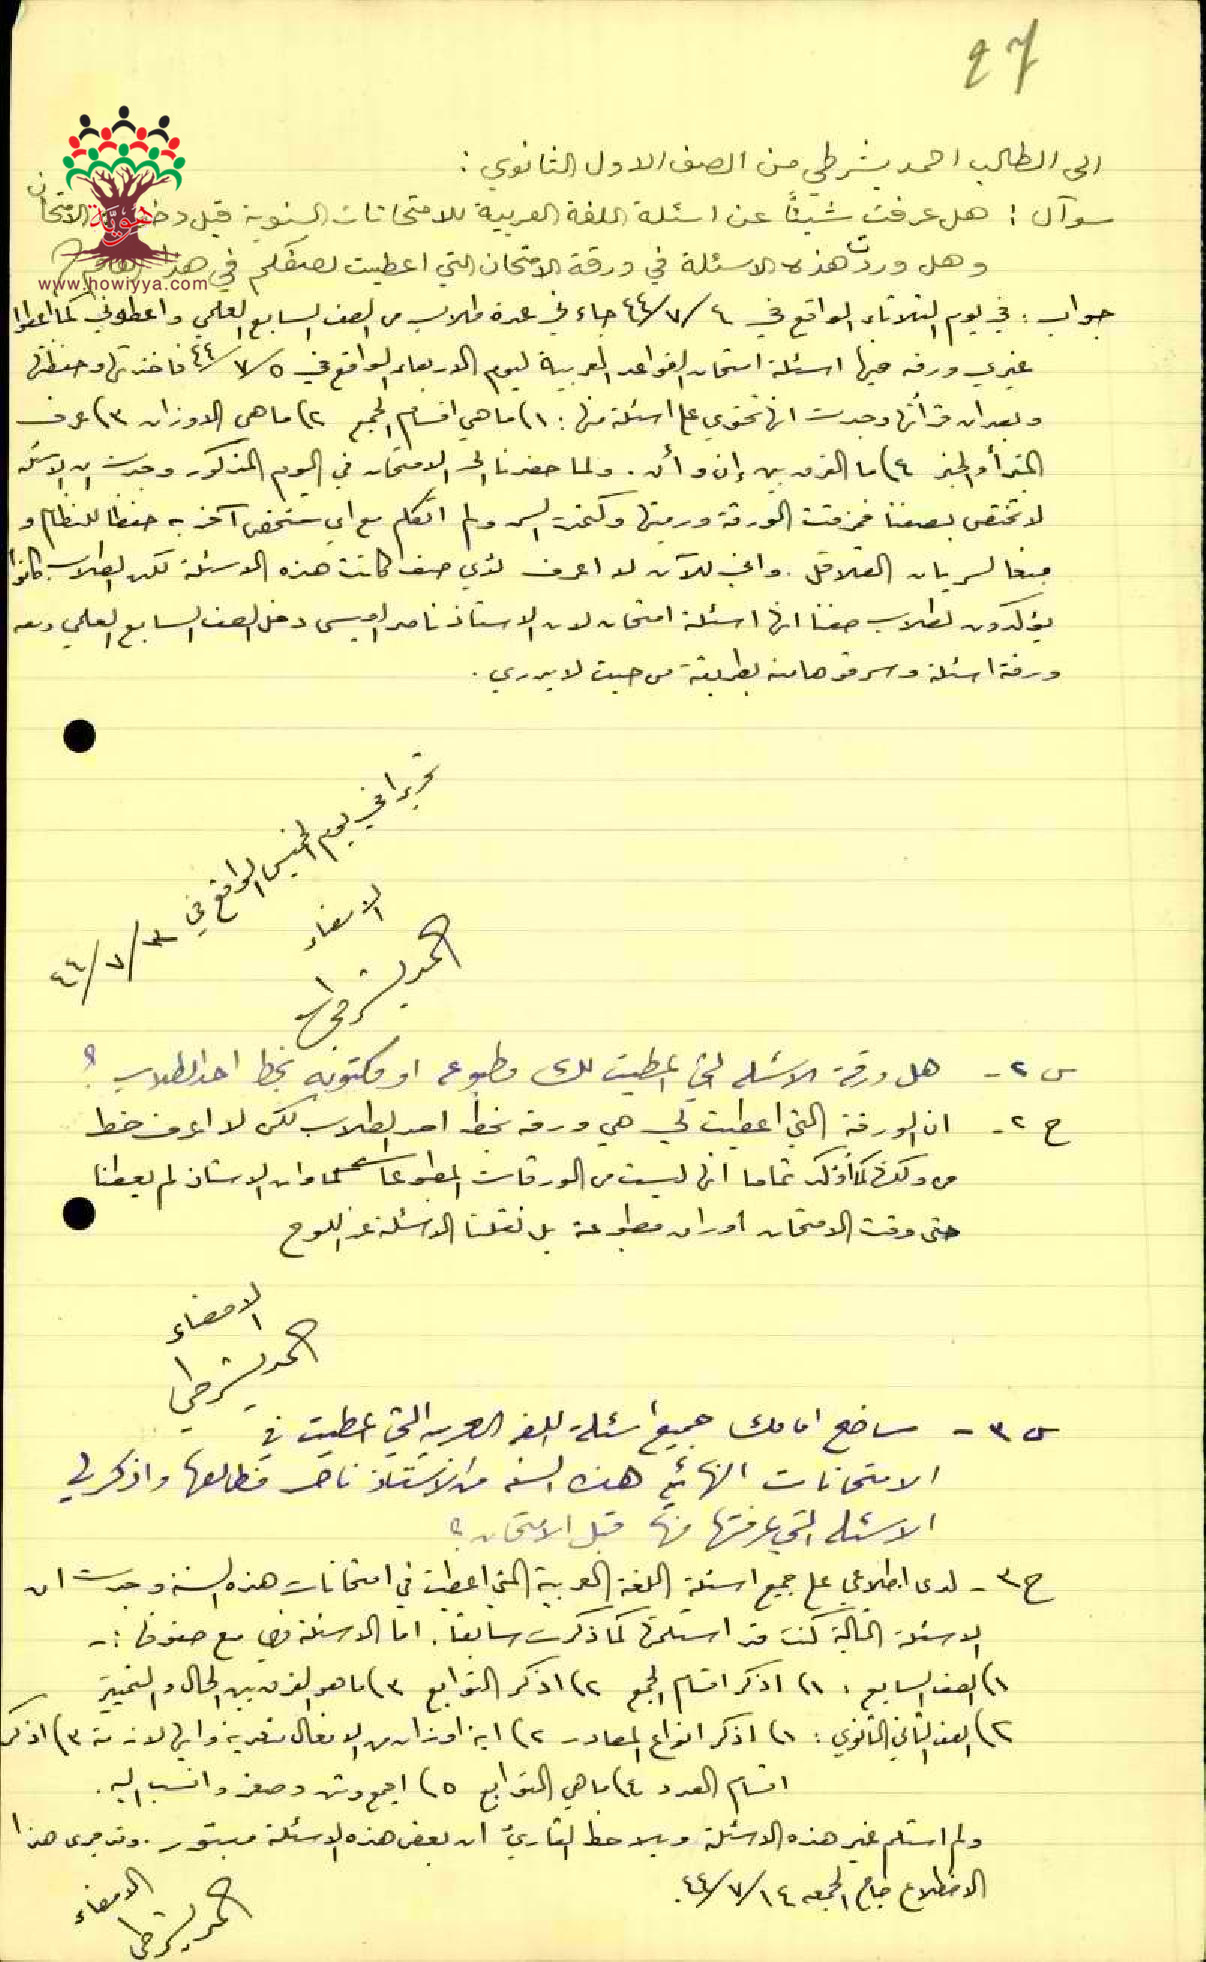 27
الى الطالب احمد يشرطي من الصف الاول الثانوي :
سوآل : هل عرفت شيئاً عن اسئلة اللغة العربية للامتحانات السنوية قبل الامتحان
وهل وردت هذه الاسئلة في ورقة الامتحان التي اعطيت لصفكم في هذا
هويّة
www.howiyya.com
جواب : في يوم الثلاثاء الواقع في ٤ /٧/ ٤٤ جاءني عدة طلاب من الصف السابع العلمي واعطوني كما اعطوا
غيري ورقه فيها اسئلة امتحان القواعد العربية ليوم الاربعاء الواقع في ٥ /٧/ ٤٤ فاخذتها وحفظتها
وبعد ان قرأتها وجدت انها تحتوي على اسئلة منها : ١) ما هي اقسام الجمع ٢) ما هي الاوزان ٣) عرف
المبتدأ والخبر ٤) ما الفرق بين إن وأن . ولما حضرنا الى الامتحان في اليوم المذكور وجدت ان الاسئلة
لا تختص بصفنا فمزقت الورقة ورميتها وكتمت السر ولم اتكلم مع اي شخص آخر به حفظا للنظام و
منعا لسريان القلاقل . واني للآن لا اعرف لأي صف كانت هذه الاسئلة لكن الطلاب كانوا
يؤكدون لطلاب صفنا انها اسئلة امتحان لان الاستاذ ناصر العيسى دخل الصف السابع العلمي ومعه
ورقة اسئلة وسرقوها منه بطريقة من حيث لا يدري .
تحريرا في يوم الخميس الواقع في ٣ /٧/ ٤٤
الامضاء
احمد يشرطي
س ٢ - هل ورقة الاسئله التي اعطيت لك مطبوعه او مكتوبه بخط احد الطلاب ؟
ج ٢ - ان الورقة التي اعطيت لي هي ورقه بخط احد الطلاب لكن لا اعرف خط
من ولكن كما أؤكد تماما انها ليست من الورقات المطبوعات كما وان الاستاذ لم يعطنا
حتى وقت الامتحان اوراق مطبوعة بل نقلنا الاسئلة عن اللوح
الامضاء
احمد يشرطي
س ٣ - ساضع امامك جميع اسئلة اللغه العربيه التي اعطيت في
الامتحانات النهائيه هذه السنه من الاستاذ ناصر فطالعها واذكر لي
الاسئله التي عرفتها منها قبل الامتحان ؟
ج ٣ - لدى اطلاعي على جميع اسئلة اللغة العربية التي اعطيت في امتحانات هذه السنة وجدت ان
الاسئلة التالية كنت قد استلمتها كما ذكرت سابقا . اما الاسئلة فهي مع صفوفها : -
١) الصف السابع : ١) اذكر اقسام الجمع ٢) اذكر التوابع ٣) ما هو الفرق بين الحال والتمييز
٢) الصف الثاني الثانوي : ١) اذكر انواع المصادر ٢) اية اوزان من الافعال متعدية وايها لازمة ٣) اذكر
اقسام العدد ٤) ما هي التوابع ٥) اجمع وثن وصغر وانسب اليه .
ولم استلم غير هذه الاسئلة ويلاحظ القارئ ان بعض هذه الاسئلة مبتور . وقد جرى هذا
الاطلاع صباح الجمعه ١٤ /٧/ ٤٤ .
الامضاء
احمد يشرطي